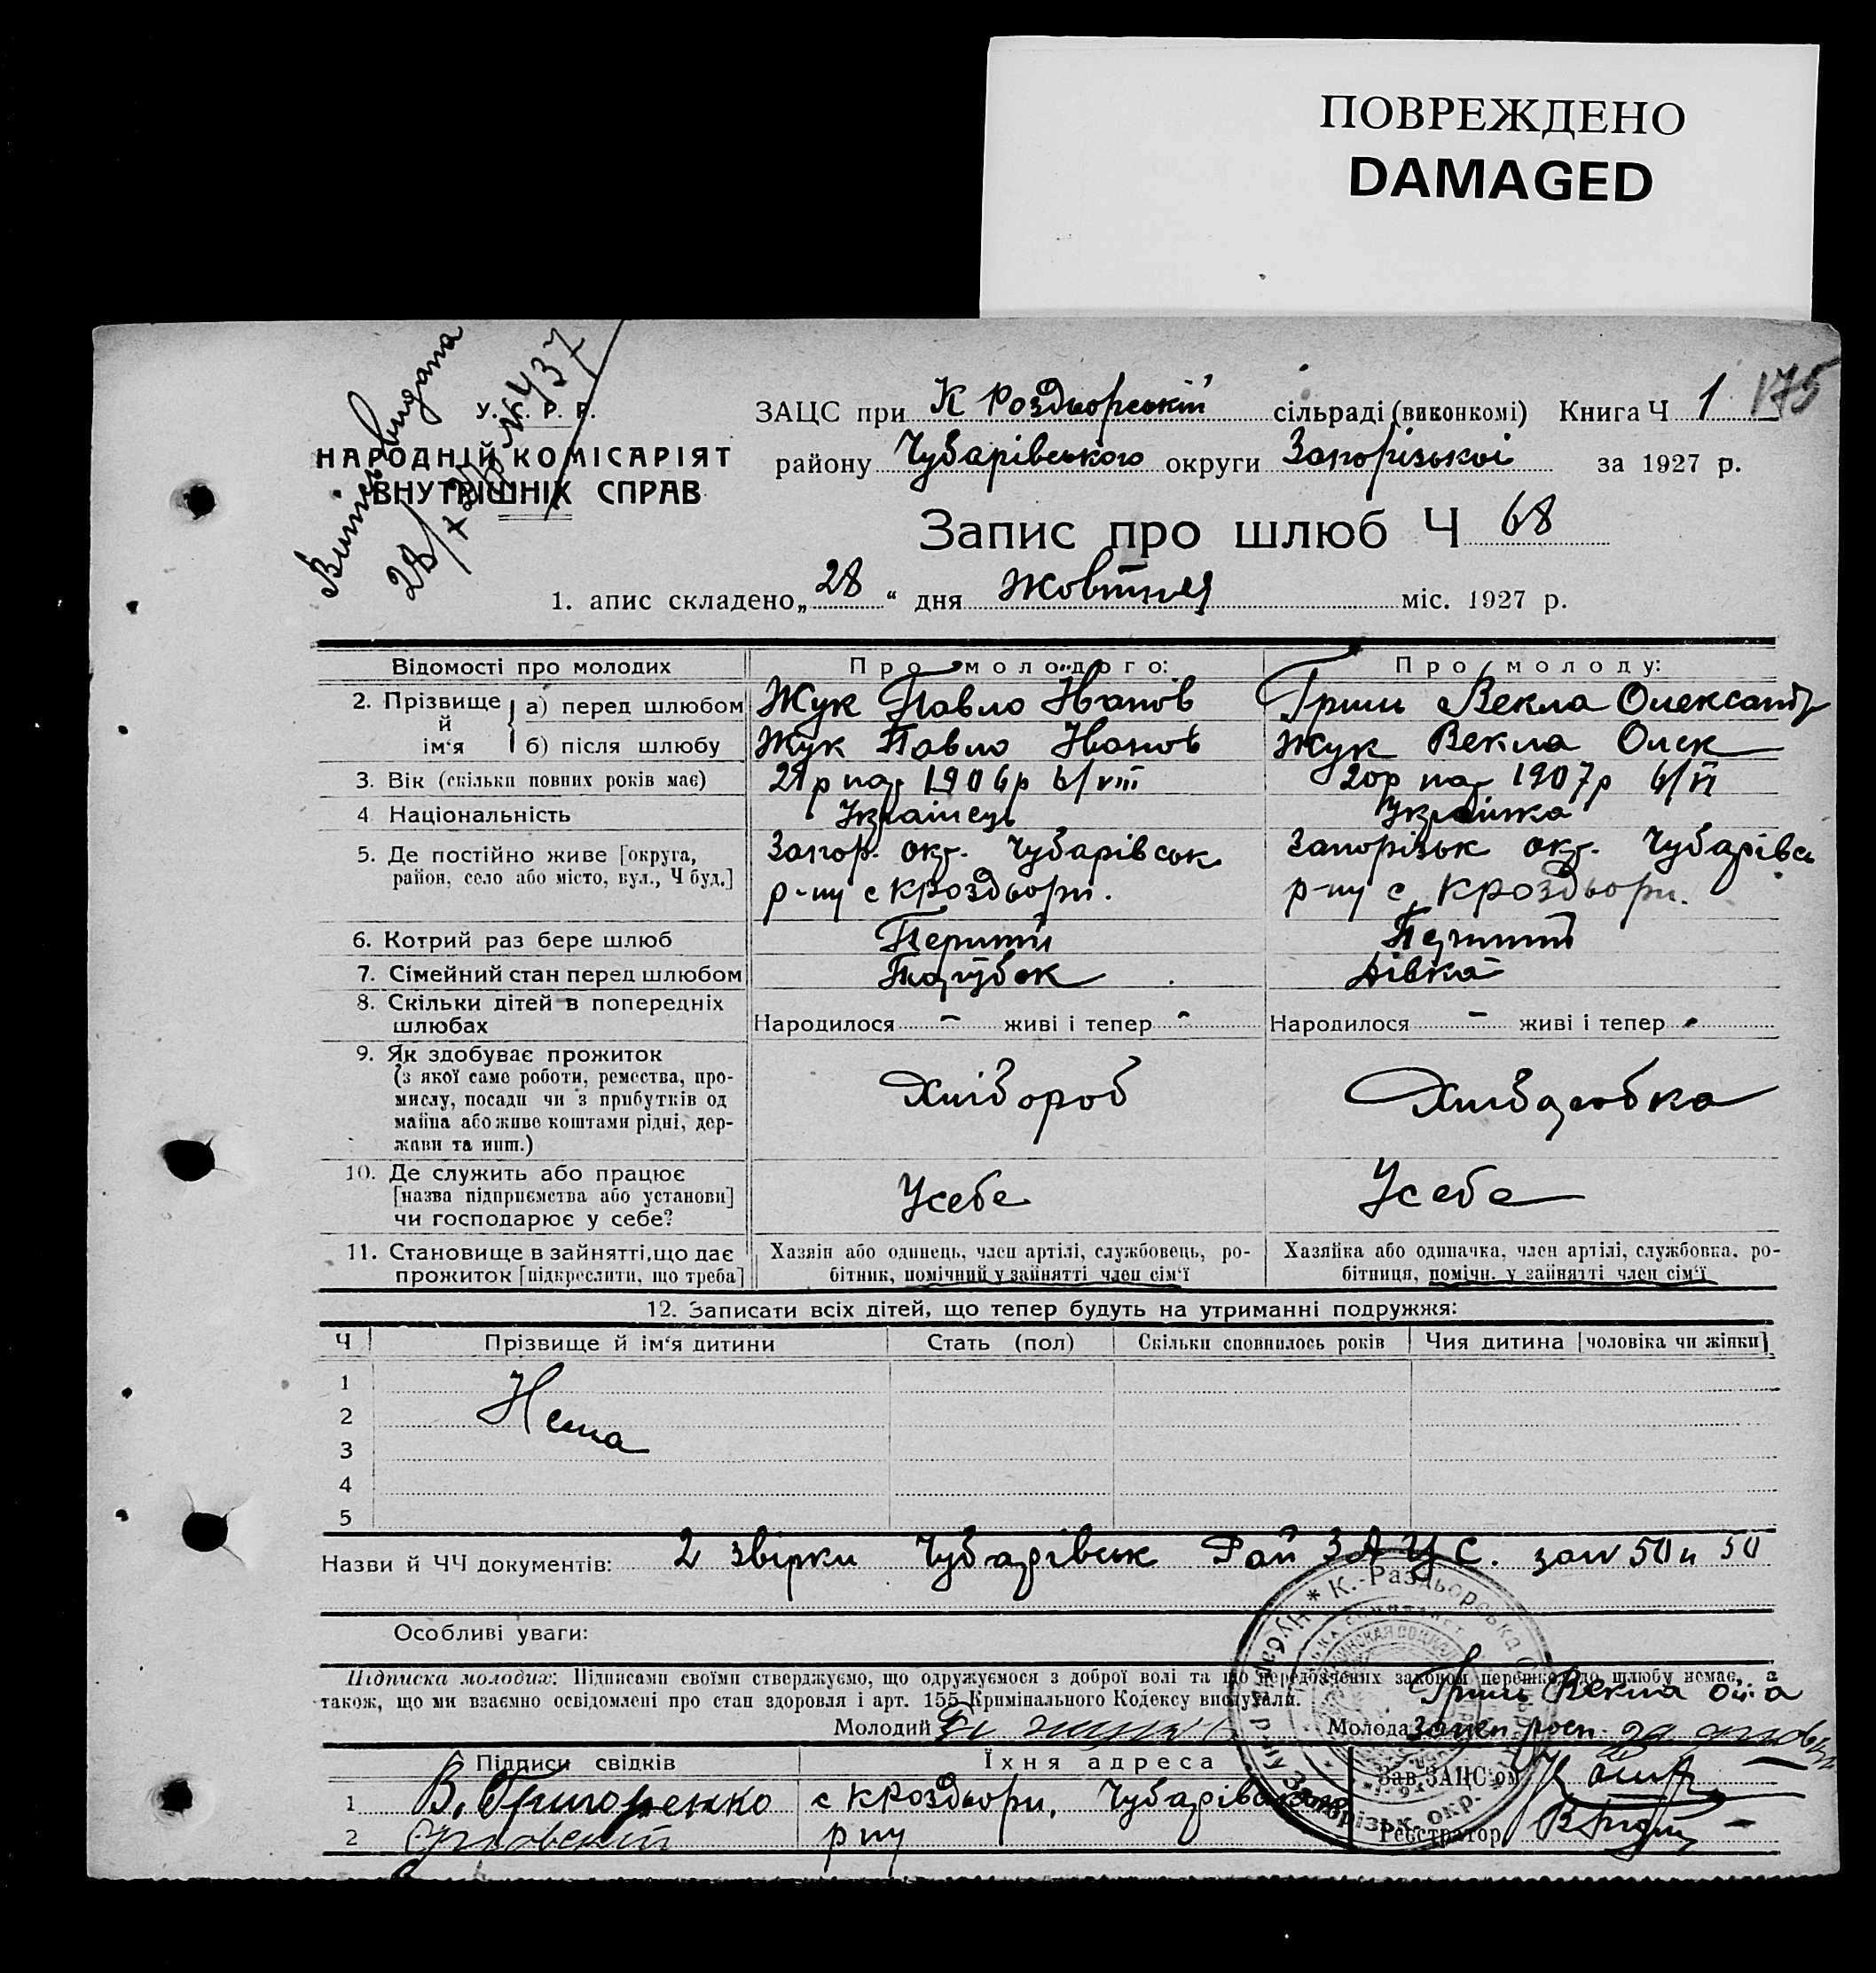 ПОВРЕЖДЕНО
DAMAGED
175
Витяг видана
28/X 27р №437
У. С. Р. Р.
НАРОДНІЙ КОМІСАРІЯТ
ВНУТРІШНІХ СПРАВ
ЗАЦС при К Роздьорській сільраді (виконкомі) Книга Ч 1
району Чубарівського округи Запорізької за 1927 р.
Запис про шлюб Ч 68
1. апис складено „28“ дня Жовтня міс. 1927 р.
Відомості про молодих Про молодого: Про молоду:
2. Прізвище й ім‘я а) перед шлюбом Жук Павло Іванов Гриць Векла Олександр
б) після шлюбу Жук Павло Іванов Жук Векла Олек
3. Вік (скільки повних років має) 21р нар 1906р 6/VIII 20р нар 1907р 6/VI
4 Національність Українець Українка
5. Де постійно живе [округа, район, село або місто, вул., Ч буд.] Запор. окр. Чубарівськ Запорізьк окр. Чубарівсь
р-ну с Кроздьори. р-ну с. Кроздьори.
6. Котрий раз бере шлюб Перший Перший
7. Сімейний стан перед шлюбом Парубок Дівка
8. Скільки дітей в попередніх шлюбах Народилося - живі і тепер - Народилося - живі і тепер -
9. Як здобуває прожиток
(з якої саме роботи, ремества, про-
мислу, посади чи з прибутків од
майна або живе коштами рідні, дер-
жави та инш.)
ХліБороб Хліборобка
10. Де служить або працює
[назва підприємства або установи]
чи господарює у себе?
Усебе Усебе
11. Становище в зайнятті, що дає
прожиток [підкреслити, що треба]
Хазяїн або одинець, член артілі, службовець, ро-
бітник, помічний у зайнятті член сім‘ї
Хазяйка або одиначка, член артілі, службовка, ро-
бітниця, помічн. у зайнятті член сім‘ї
12. Записати всіх дітей, що тепер будуть на утриманні подружжя:
Ч Прізвище й ім‘я дитини Стать (пол) Скільки сповнилось років Чия дитина [чоловіка чи жінки]
1
2 Нема
3
4
5
Назви й ЧЧ документів: 2 звірки Чубарівськ Рай ЗАЦС. за № 50 и 50
Особливі уваги:
Підписка молодих: Підписами своїми стверджуємо, що одружуємося з доброї волі та що передбачених законом перешкод до шлюбу немає, а
також, що ми взаємно освідомлені про стан здоровля і арт. 155 Кримінального Кодексу вислухали.
Гриць Векла
Молодий Молода
Підписи свідків Їхня адреса Зав. ЗАЦС‘ом
1 В. Григоренко с Кроздьори, Чубарівського
2 р ну Реєстратор
К.-Раздьорська
Запорізьк. окр.